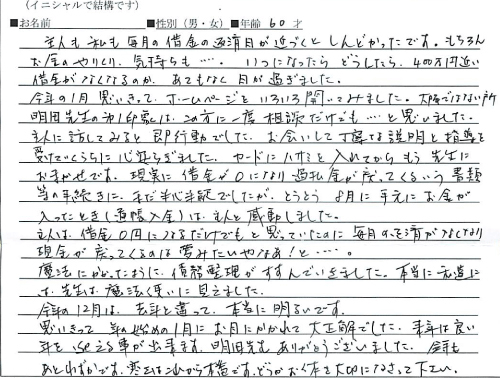 （イニシャルで結構です）
■お名前 ■性別（男・女） ■年齢 60 才
主人も私も毎月の借金の返済日が近づくとしんどかったです。もちろん
お金のやりくり、気持ちも…。いつになったらどうしたら、400万円近い
借金がなくなるのか、あてもなく月が過ぎました。
今年の1月 思いきって、ホームページといろいろ開いてみました。大阪ではない所
明田先生の第1印象は、この方に一度相談だけでも…と思いました。
主人に話してみると即行動でした。お会いして丁寧な説明と指導を
受けていくうちに心安らぎました。カードにハサミを入れてからもう先生に
おまかせです。現実に借金が0になり過払金が戻ってくるいう書類
等の手続きに、まだ半心半疑でしたが、とうとう8月に手元にお金が
入ったとき（通帳入金）は主人と感動しました。
主人は、借金0円になるだけでもと思っていたのに毎月の返済がなくなり
現金が戻ってくるのは夢みたいやなあ！と…。
魔法にかかったように、債務整理がすすんでいきました。本当に私達に
は、先生は魔法使いに見えました。
今年の12月は、去年と違って、本当に明るいです。
思いきって年の始めの1月にお目にかかれて大正解でした。来年は良い
年を迎える事が出来ます。明田先生ありがとうございました。今年も
あとわずかです。寒さはこれから本番です。どうかお体を大切になさって下さい。